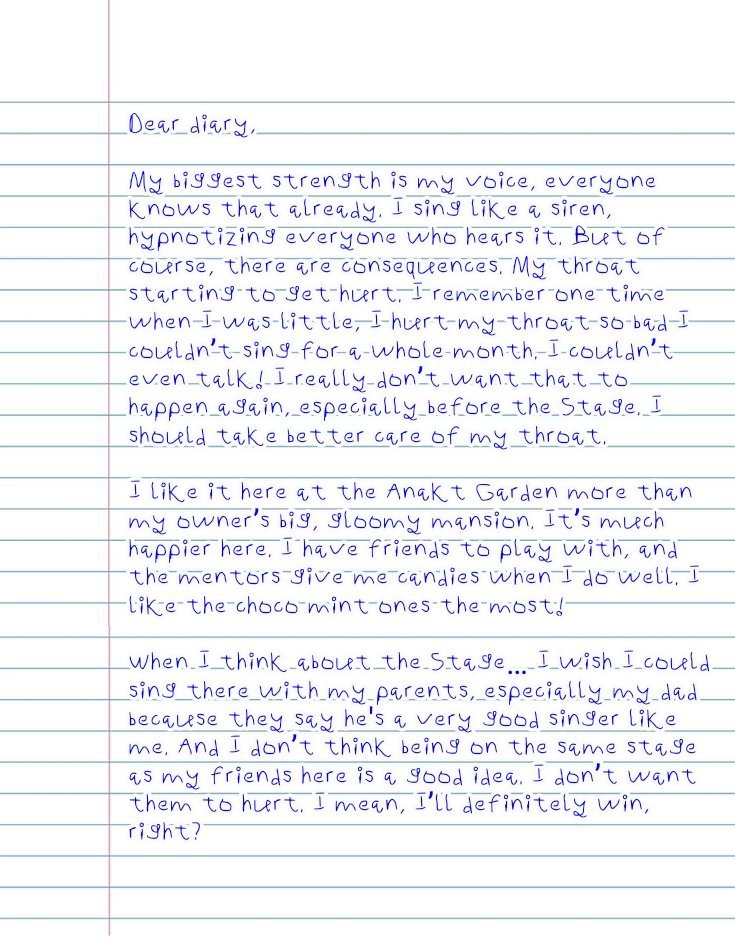 Dear diary,
My biggest strength is my voice, everyone
knows that already. I sing like a siren,
hypnotizing everyone who hears it. But of
course, there are consequences. My throat
starting to get hurt. I remember one time
when I was little, I hurt my throat so bad I
couldn't sing for a whole month. I couldn't
even talk! I really don't want that to
happen again, especially before the Stage. I
should take better care of my throat.
I like it here at the Anakt Garden more than
my owner's big, gloomy mansion. It's much
happier here. I have friends to play with, and
the mentors give me candies when I do well. I
like the choco mint ones the most!
when I think about the Stage... I wish I could
sing there with my parents, especially my dad
because they say he's a very good singer like
me. And I don't think being on the same stage
as my friends here is a good idea. I don't want
them to hurt. I mean, I'll definitely win,
right?